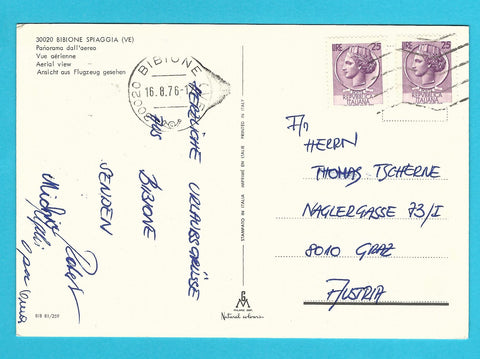 30020 BIBIONE SPIAGGIA (VE)
Panorama dall'aereo
Vue aérienne
Aerial view
Ansicht aus Flugzeug gesehen
30020 BIBIONE
16.8.76-1
LIRE 25
REPUBBLICA
ITALIANA
LIRE 25
REPUBBLICA
ITALIANA
HERZLICHE URLAUBSGRÜSSE
AUS
BIBIONE
SENDEN
STAMPATO IN ITALIA IMPRIMÉ EN ITALIE PRINTED IN ITALY
HERRN
THOMAS TSCHERNE
NAGLERGASSE 73/I
8010 GRAZ
AUSTRIA
BIB 81/259
Natural colours